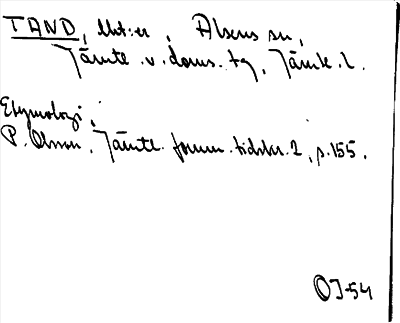 TAND, Mt:er, Alsens sn,
Jämtl. v. doms. tg, Jämtl. l.
Etymologi,
P. Olsson, Jämtl. fornm. tidskr. 2, p. 155.
OJ-54